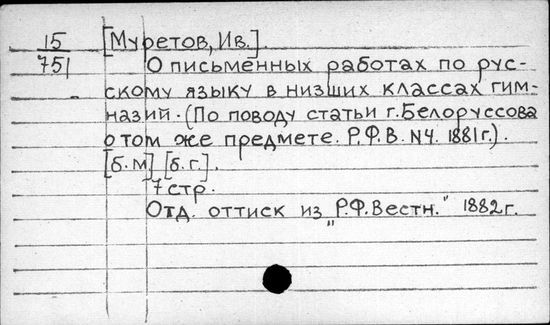 15 [Муретов, Ив.].
751 О письменных работах по рус-
скому языку в низших классах гим-
назий. (По поводу статьи г. Белоруссова
о том же предмете. Р.Ф.В. №4. 1881 г.).
[б. м] [б. г.].
7 стр.
Отд. оттиск из „Р.Ф.Вестн." 1882 г.